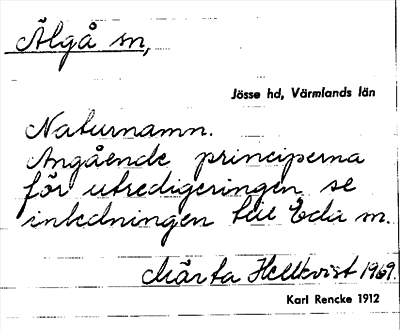 Älgå sn,
Jösse hd, Värmlands län
Naturnamn.
Angående principerna
för utredigeringen se
inledningen till Eda sn.
Märta Hellkvist 1969.
Karl Rencke 1912